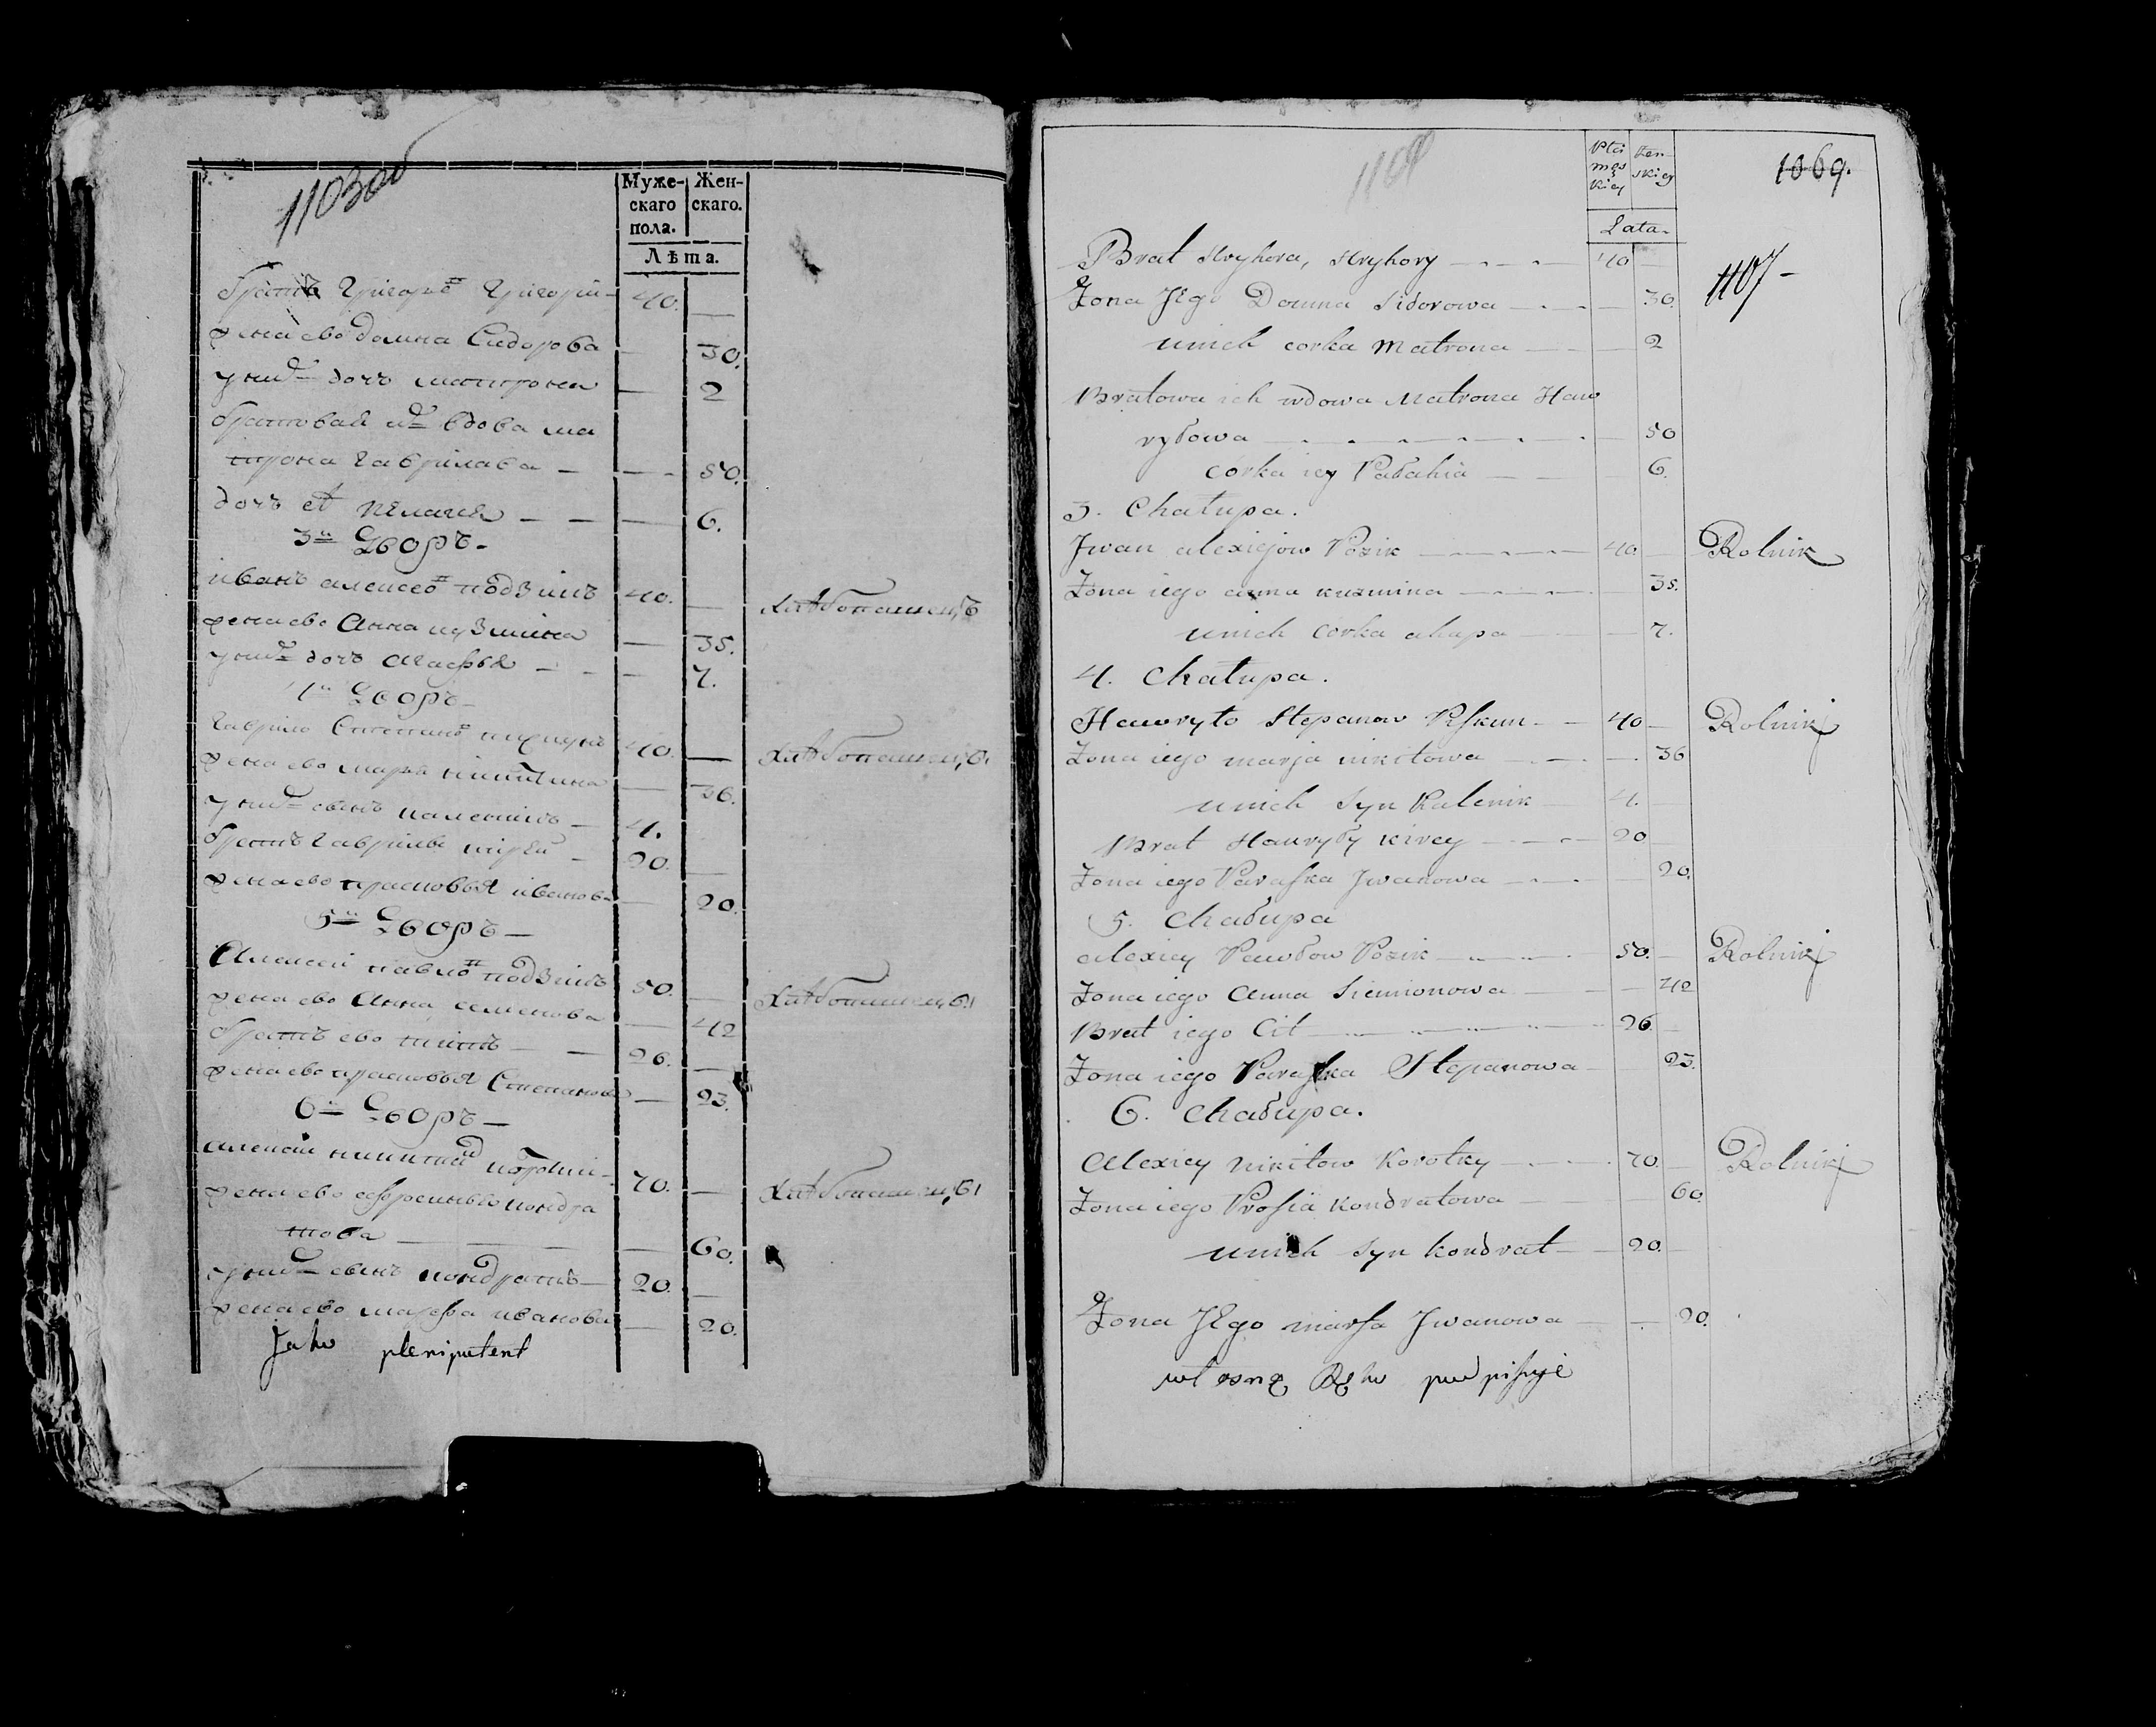 1103 об
Муже-
скаго
пола.
Жен-
скаго.
Лѣта.
братъ Григоръ Григори- 40.
жена ево домна Сидорова — 30.
у них дочъ матрона — 2
братовая их вдова ма
трона Гаврилава — — 50.
дочъ её Пелагея — — 6.
3й Дворъ.
иванъ алексеев подзикъ 40. хлѣбопашецъ
жена ево Анна кузмина — 35.
у них дочъ Агафья — 7.
4й Дворъ
гаврило Степанов 40. — хлѣбопашецъ
жена ево марья никитина — 36.
у них сынъ каленикъ — 4.
братъ гаврилы кирей — 20.
жена ево прасковья иванова — 20.
5й Дворъ —
Алексей павлов подзикъ 50. — хлѣбопашецъ
жена ево Анна семенова — 42
братъ ево титъ — 26.
жена ево прасковья Степанова — 23.
6й Дворъ —
алексей никитин 70. — хлѣбопашецъ
жена ево кондра
това — 60.
у них сынъ кондратъ — 20.
жена ево марфа иванова — 20.
Jako plenipotent
Płci
męs
kiey
Żen-
skiey
Lata.
1069.
1107 -
Brat Hryhora, Hryhory — 40 —
Żona Jego Domna Sidorowa — 30.
unich corka Matrona — 2
Bratowa ich wdowa Matrona Haw
ryłowa — 50
córka iey Pałahia — 6.
3. Chałupa.
Jwan alexiejow Pozik — 40. — Rolnik
Żona iego anna kuzmina — 35.
unich córka ahapa — 7.
4. Chałupa.
Hawryło Stepanow Piskun — 40 — Rolnik
Żona iego marja nikitowa — 36
unich Syn Kalenik 4.
Brat Hawryły kirey — 20
Żona iego Paraska Jwanowa — 20.
5. Chałupa
alexiey Pawłow Pozik — 50. — Rolnik
Żona iego Anna Siemionowa — 42
Brat iego Cit — 26. —
Żona iego Paraska Stepanowa — 23.
6. Chałupa.
Alexiey nikitow Korotky — 70. — Rolnik
Żona iego Prosia kondratowa — 60.
unich Syn kondrat — 20. —
Żona JEgo marfa Jwanowa — 20.
własnę Ręko podpisuje